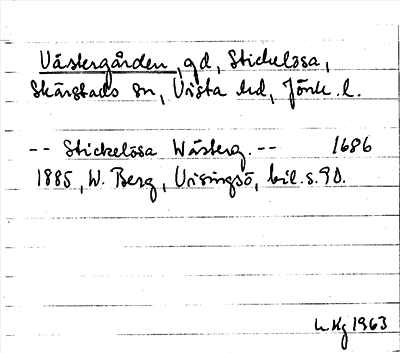 Västergården, gd, Stickelösa,
Skärstads sn, Vista hd, Jönk. l.
-- Stickelösa Wästerg. -- 1686
1885, W. Berg, Visingsö, bil. s. 90.
L. Kg 1963